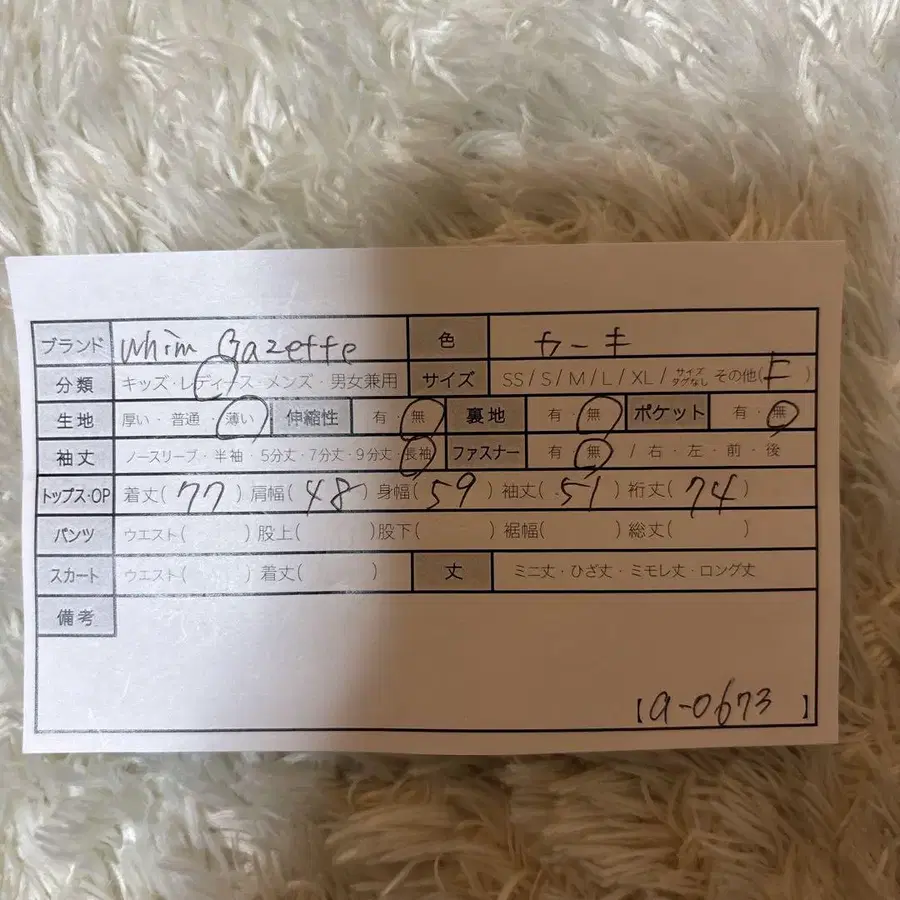 ブランド Whim Gazette 色 カーキ
分類 キッズ・レディース・メンズ・男女兼用 サイズ SS / S / M / L / XL / サイズタグなし その他( F )
生地 厚い・普通・薄い 伸縮性 有・無 裏地 有・無 ポケット 有・無
袖丈 ノースリーブ・半袖・5分丈・7分丈・9分丈・長袖 ファスナー 有・無 / 右・左・前・後
トップス・OP 着丈( 77 ) 肩幅( 48 ) 身幅( 59 ) 袖丈( 51 ) 裄丈( 74 )
パンツ ウエスト( ) 股上( ) 股下( ) 裾幅( ) 総丈( )
スカート ウエスト( ) 着丈( ) 丈 ミニ丈・ひざ丈・ミモレ丈・ロング丈
備考
【a-0673 】